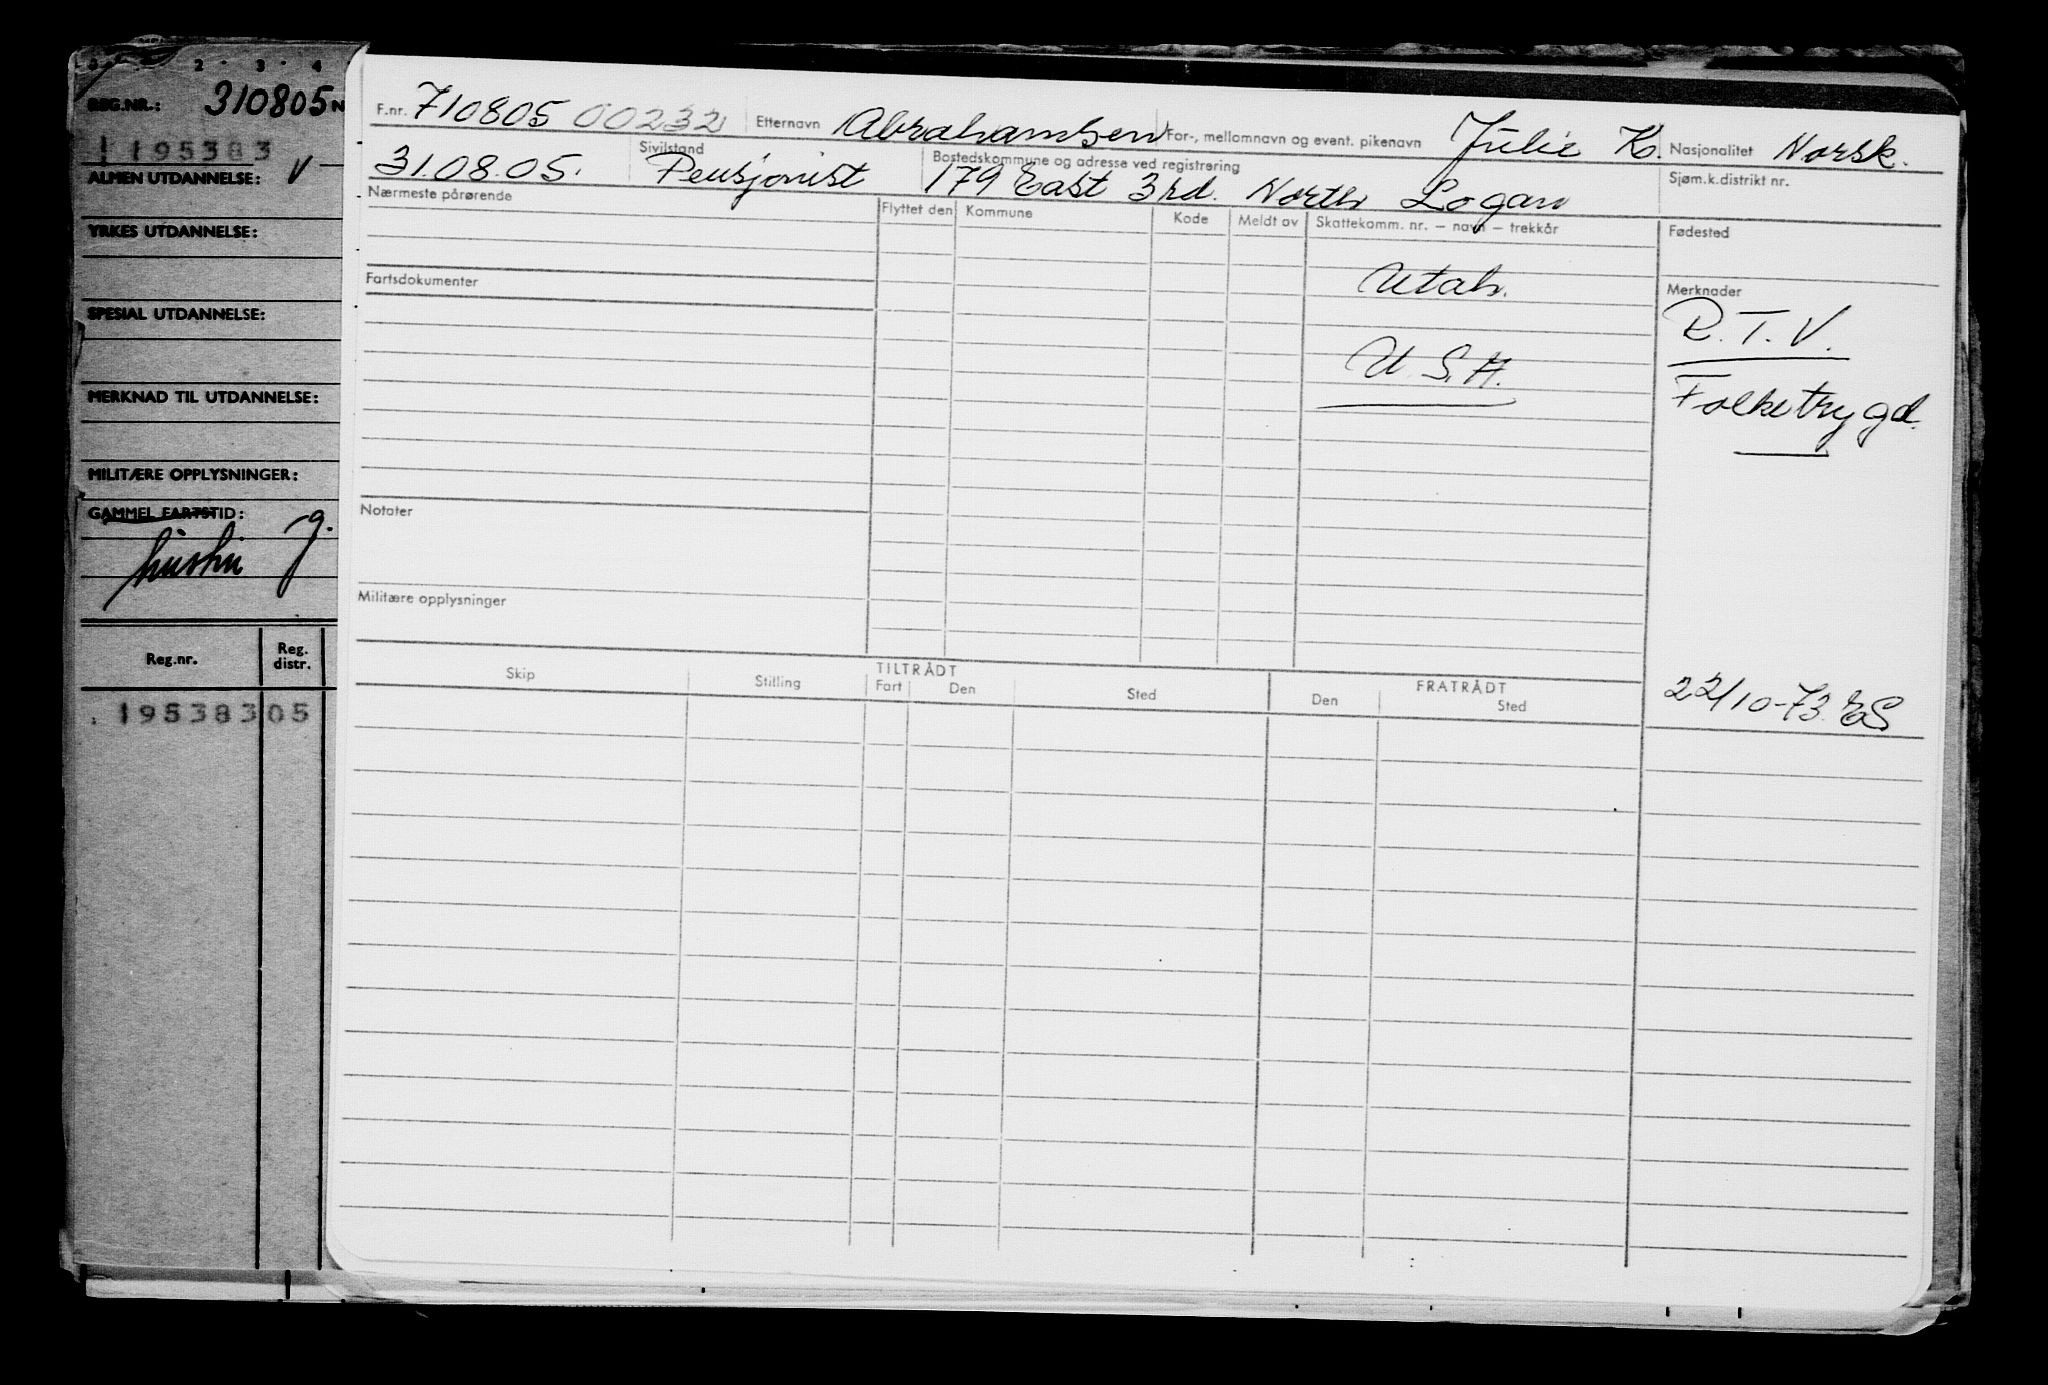 2 · 3 · 4
REG.NR.: 310805 N
195383
ALMEN UTDANNELSE: V
YRKES UTDANNELSE:
SPESIAL UTDANNELSE:
MERKNAD TIL UTDANNELSE:
MILITÆRE OPPLYSNINGER:
GAMMEL FARTSTID:
Reg.nr. Reg. distr.
195383 05
F.nr. 710805 00232 Etternavn Abrahamsen For-, mellomnavn og event. pikenavn Julie K. Nasjonalitet Norsk.
31.08.05. Sivilstand Pensjonist Bostedskommune og adresse ved registrering 179 East 3rd. North Logan Sjøm.k.distrikt nr.
Nærmeste pårørende Flyttet den Kommune Kode Meldt av Skattekomm. nr. – navn – trekkår Fødested
Utah.
U.S.A.
Fartsdokumenter
Merknader
R.T.V.
Folketrygd.
Notater
Militære opplysninger
22/10-73. ES
TILTRÅDT FRATRÅDT
Skip Stilling Fart Den Sted Den Sted